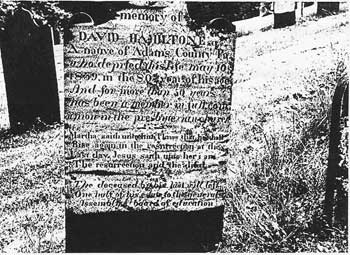 memory of
DAVID HAMILTON
A native of Adams County
who departed his life may 10
1869, in the 80 year of his age
And for more than 50 years
has been a member in full com
union in the presbyterian church
Martha saith unto him I know that he shall
Rise again in the resurrection at the
Last day. Jesus saith unto her i am
The resurrection and the life
The deceased by his last will left
One half of his estate to the general
Assemblys board of education